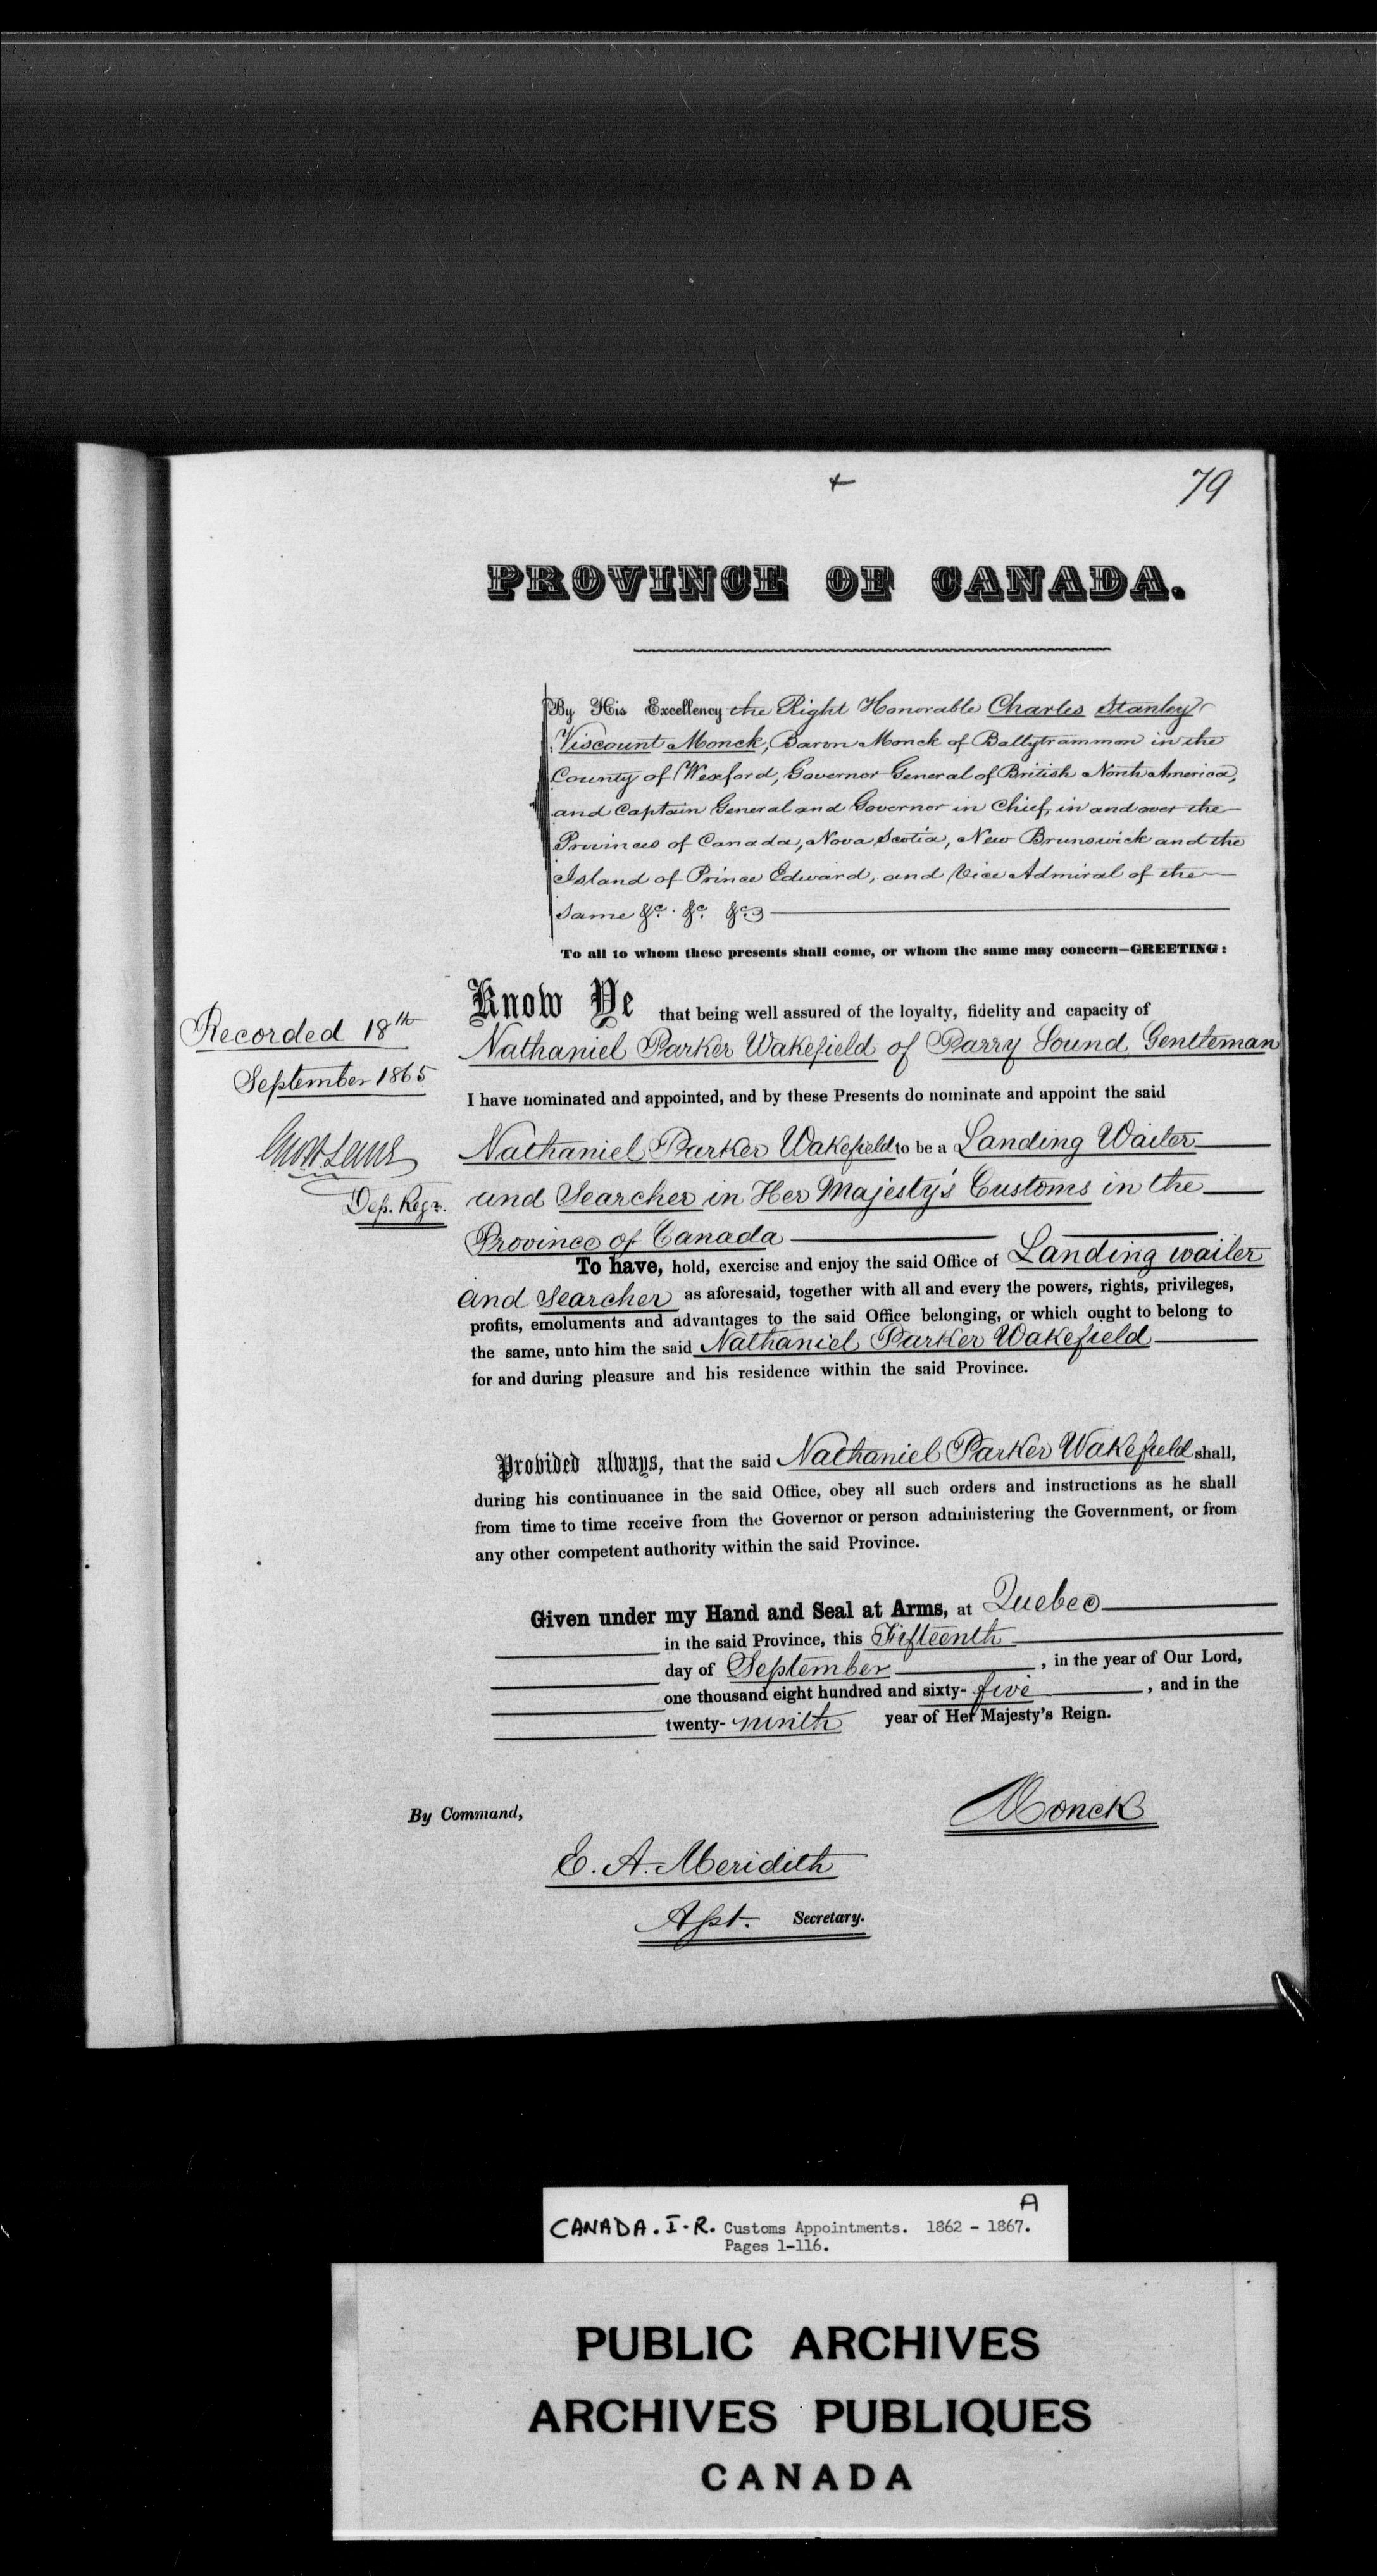 79
PROVINCE OF CANADA.
By His Excellency the Right Honorable Charles Stanley
Viscount Monck, Baron Monck of Ballytrammon in the
County of Wexford, Governor General of British North America,
and Captain General and Governor in Chief, in and over the
Provinces of Canada, Nova Scotia, New Brunswick and the
Island of Prince Edward, and Vice Admiral of the
Same &c. &c. &c
To all to whom these presents shall come, or whom the same may concern—GREETING:
Know Ye that being well assured of the loyalty, fidelity and capacity of
Nathaniel Parker Wakefield of Parry Sound Gentleman
I have nominated and appointed, and by these Presents do nominate and appoint the said
Nathaniel Parker Wakefield to be a Landing Waiter
and Searcher in Her Majesty's Customs in the
Province of Canada
To have, hold, exercise and enjoy the said Office of Landing waiter
and Searcher as aforesaid, together with all and every the powers, rights, privileges,
profits, emoluments and advantages to the said Office belonging, or which ought to belong to
the same, unto him the said Nathaniel Parker Wakefield
for and during pleasure and his residence within the said Province.
Provided always, that the said Nathaniel Parker Wakefield shall,
during his continuance in the said Office, obey all such orders and instructions as he shall
from time to time receive from the Governor or person administering the Government, or from
any other competent authority within the said Province.
Given under my Hand and Seal at Arms, at Quebec
in the said Province, this Fifteenth
day of September, in the year of Our Lord,
one thousand eight hundred and sixty-five, and in the
twenty-ninth year of Her Majesty's Reign.
Monck
By Command,
E. A. Meridith
Asst. Secretary.
Recorded 18th
September 1865
Dep. Regr.
CANADA. I.R. Customs Appointments. 1862 - 1867. A
Pages 1-116.
PUBLIC ARCHIVES
ARCHIVES PUBLIQUES
CANADA